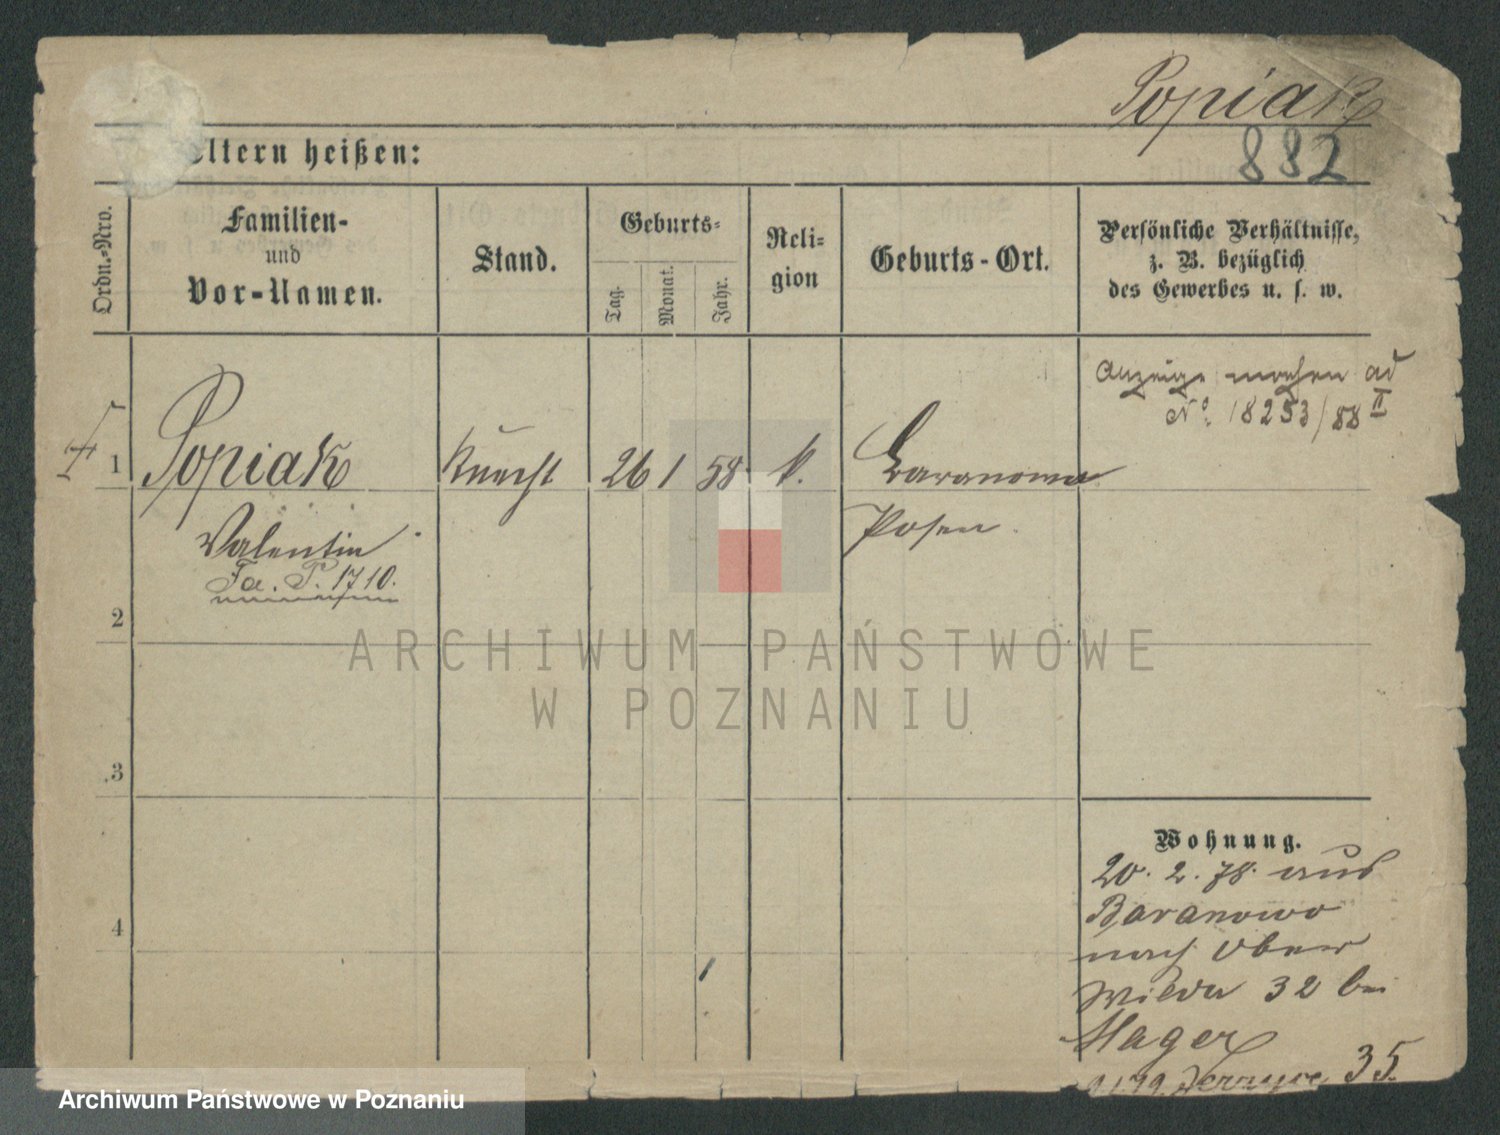 Popiak
882
Eltern heißen:
Ordn.-Nro.
Familien-
und
Vor-Namen.
Stand.
Geburts-
Tag.
Monat.
Jahr.
Reli-
gion
Geburts-Ort.
Persönliche Verhältnisse,
z. B. bezüglich
des Gewerbes u. s. w.
Anzeige machen ad
No. 18253/88 II
1 Popiak Knecht 26 1 58 k. Baranowo
Posen.
Valentin
Fa. P. 1710.
2
3
4
ARCHIWUM PAŃSTWOWE
W POZNANIU
Wohnung.
20. 2. 78. aus
Baranowo
nach Ober
Wilda 32 bei
Hager
35.
Archiwum Państwowe w Poznaniu